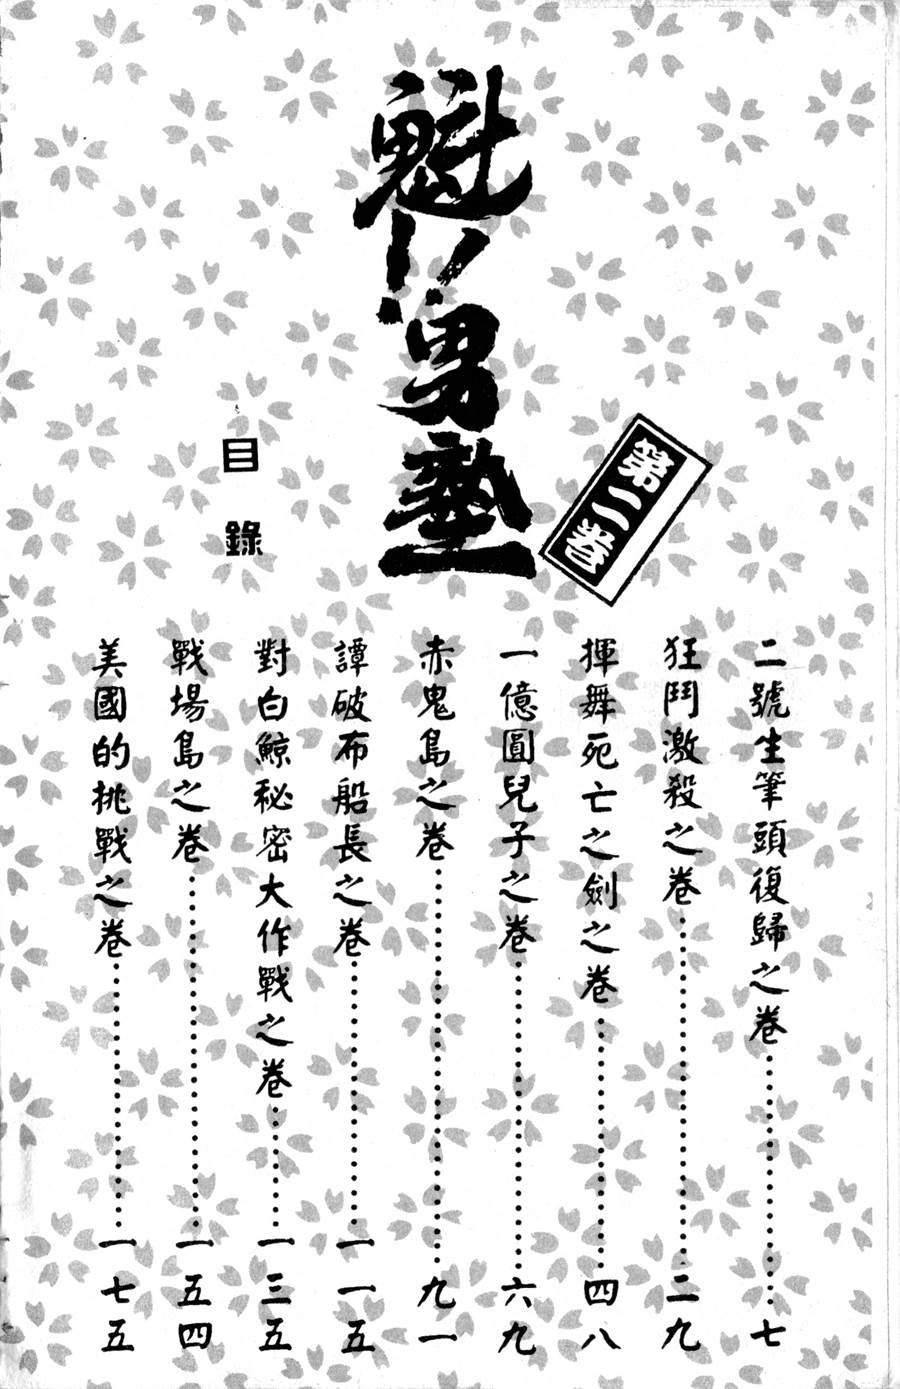 魁!!男塾
第二卷
目錄
二號生筆頭復歸之卷…………七
狂鬥激殺之卷…………二九
揮舞死亡之劍之卷…………四八
一億圓兒子之卷…………六九
赤鬼島之卷…………九一
譚破布船長之卷…………一一五
對白鯨秘密大作戰之卷…………一三五
戰場島之卷…………一五四
美國的挑戰之卷…………一七五